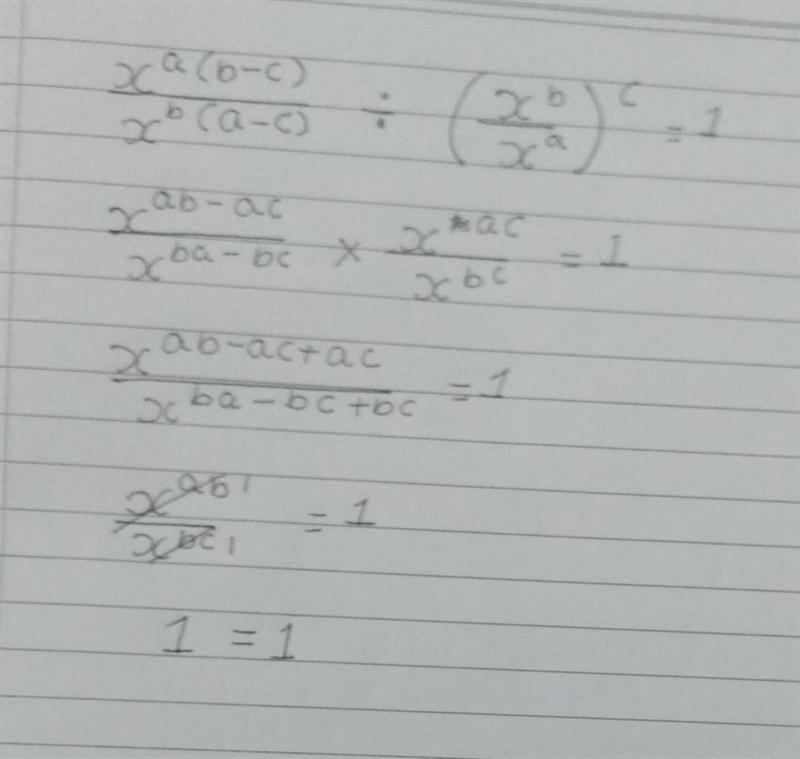 x^{a(b-c)} / x^{b(a-c)} ÷ (x^b / x^a)^c = 1
x^{ab-ac} / x^{ba-bc} × x^{ac} / x^{bc} = 1
x^{ab-ac+ac} / x^{ba-bc+bc} = 1
x^{ab} 1 / x^{bc} 1 = 1
1 = 1